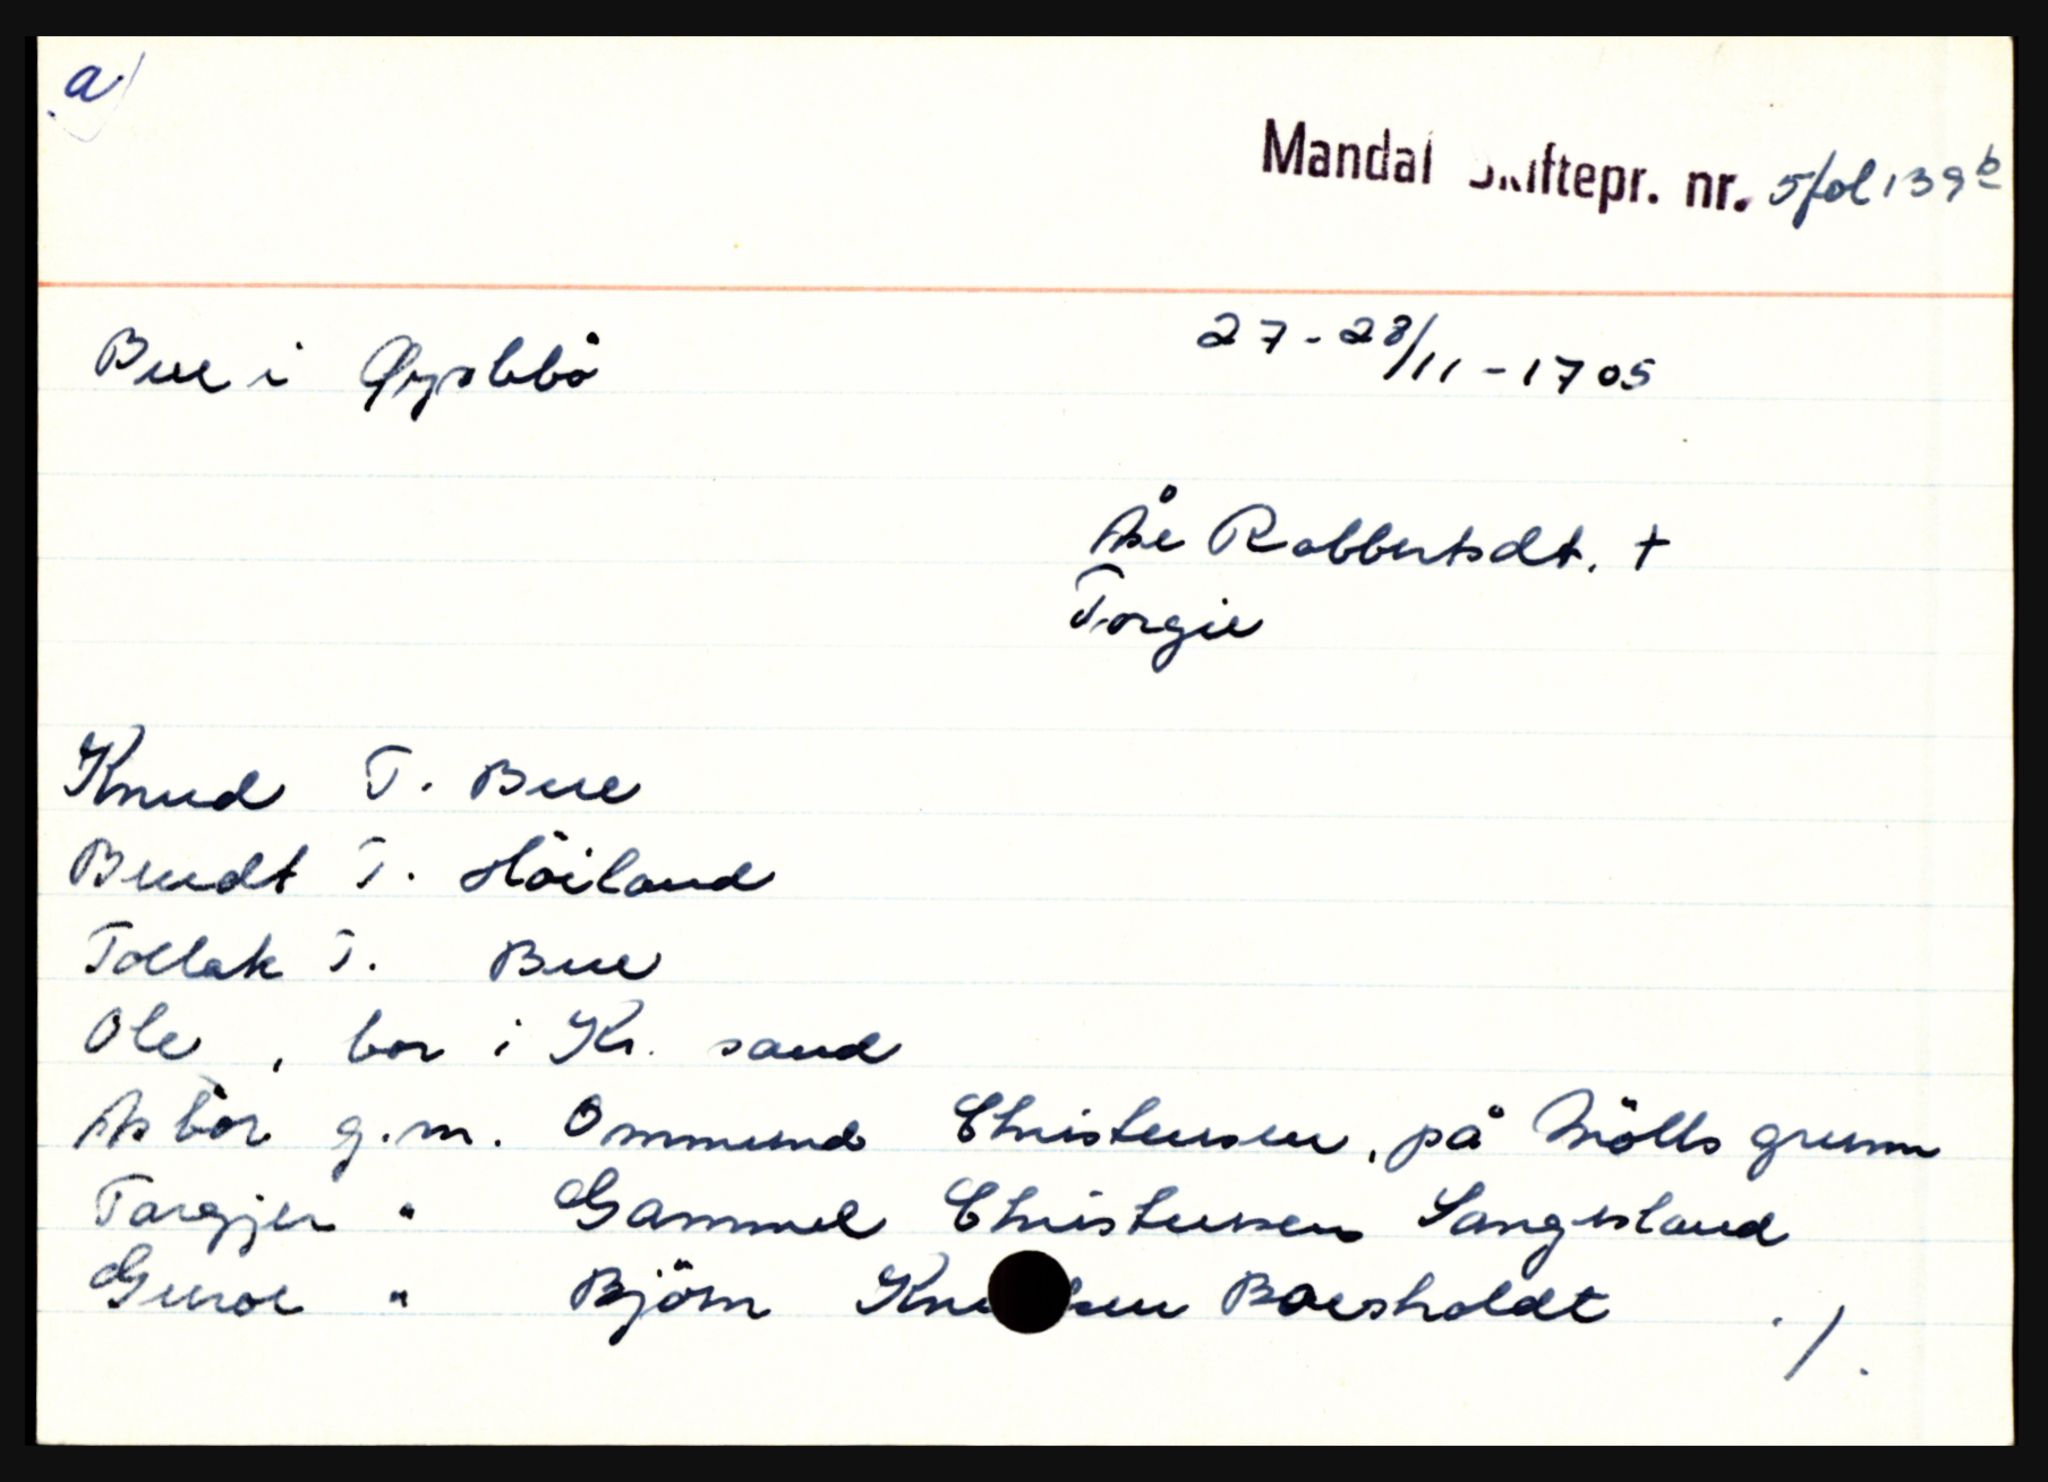 a
Mandal Skiftepr. nr. 5 fol 139 b
Bue i Øyslebö
27-28/11-1705
Åse Robbertsdt. +
Torgie
Knud T. Bue
Bendt T. Höiland
Tollak T. Bue
Ole, bor i Kr. sand
Asbor g.m. Ommund Christensen, på Mölls grunn
Targjer " Gammel Christensen Sangesland
Guroe " Björn Knudsen Boesholdt ./.